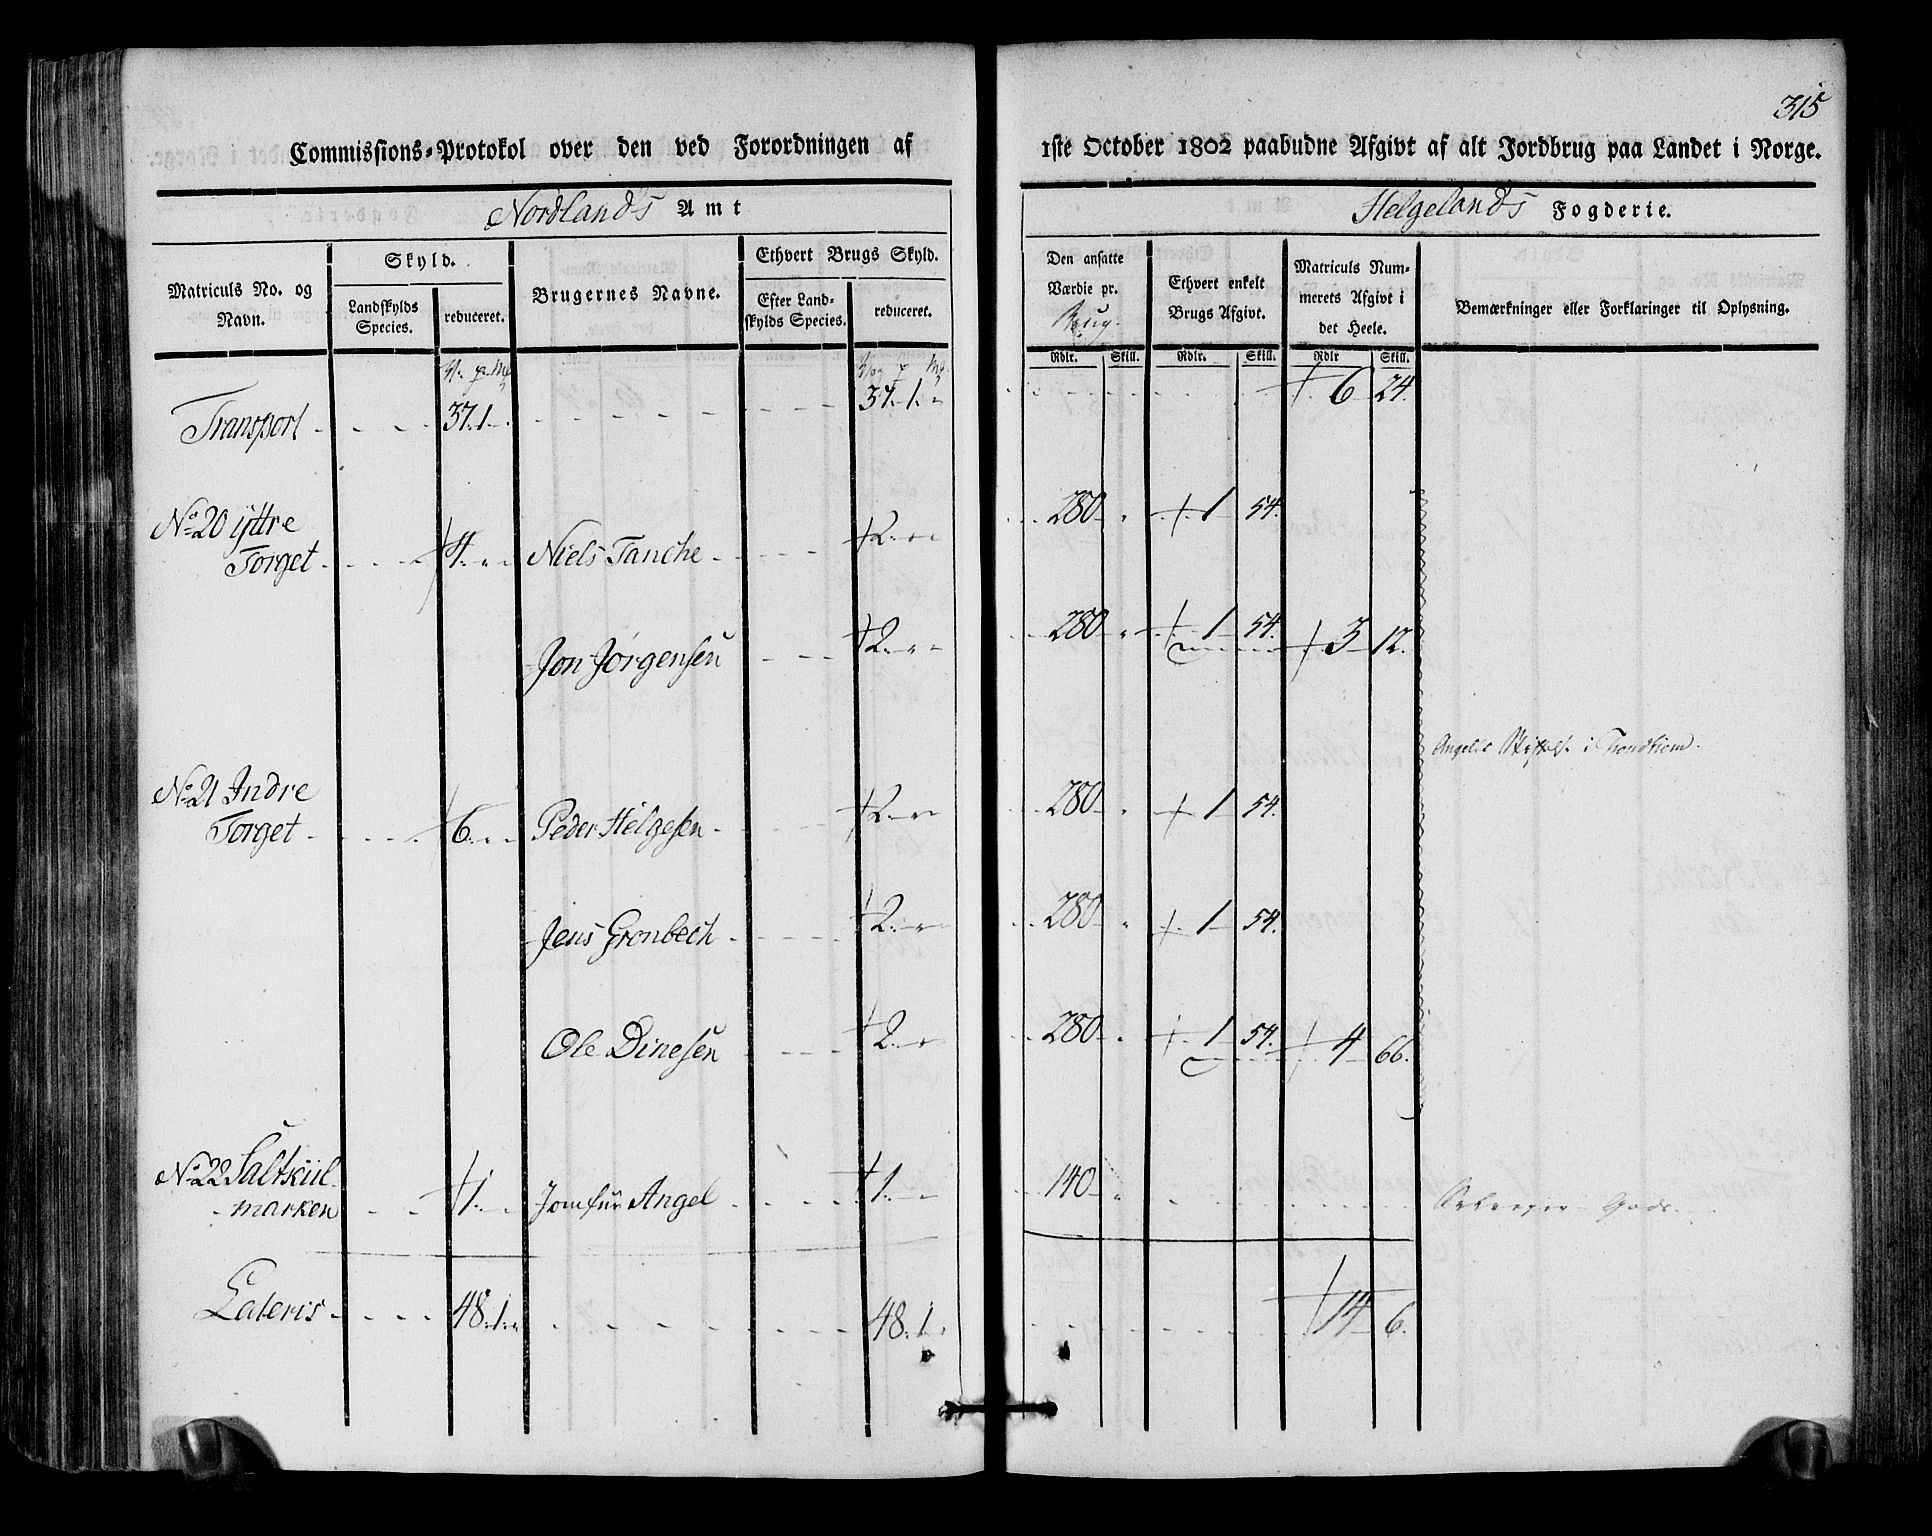 315
Commissions-Protokol over den ved Forordningen af 1ste October 1802 paabudne Afgivt af alt Jordbrug paa Landet i Norge.
Nordlands Amt
Helgelands Fogderie.
Matriculs No. og Navn.
Skyld.
Landskylds Species.
reduceret.
Brugernes Navne.
Ethvert Brugs Skyld.
Efter Landskylds Species.
reduceret.
Den ansatte Værdie pr. Brug.
Ethvert enkelt Brugs Afgivt.
Matriculs Nummerets Afgivt i det Heele.
Bemærkninger eller Forklaringer til Oplysning.
Rdlr. Skill. Rdlr. Skill. Rdlr Skill.
Transport - - - 37. 1. - - - 37. 1. - - - 6 24.
No 20 ijttre
Torget - - - 4. - - Niels Tanche - - - 2. - - 280 - 1 54.
Jon Jørgensen - - - 2. - - 280 - 1 54. 3 12.
Angells Stiftelse i Trondhiem.
No 21 Indre
Torget - - - 6. - - Peder Helgesen - - - 2. - - 280 - 1 54.
Jens Gronbech - - - 2. - - 280 - 1 54.
Ole Dinesen - - - 2. - - 280 - 1 54. 4 66.
No 22 Saltkiil-
marken - - 1. - - Jomfur Angel - - - 1. - - 140 - - - Selveyer Gods.
Lateris - - - 48. 1. - - - 48. 1. - - - 14 6.